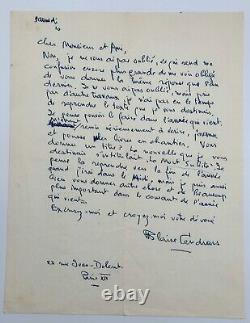 samedi
Cher Monsieur et Ami,
Non, je ne vous ai pas oublié, ce qui rend ma
confusion encore plus grande de me voir obligé
de vous donner la même réponse que l'an
dernier. Je ne vous ai pas oublié, mais
par d'autres travaux je n'ai pas eu le temps
de reprendre le texte que je vous destinais.
Je pense pouvoir le faire dans l'année qui vient.
remis sérieusement à écrire,
et pousse plus livres en chantier. Vous
donner un titre? La nouvelle que je vous
destinais s'intitulait: La Mort Subite. Je
pense la reprendre vers la fin de l'année
dans le Midi, mais je puis aussi
bien vous donner autre chose et de beaucoup
plus important dans le courant de l'année
qui vient.
Excusez-moi et croyez-moi votre dévoué
Blaise Cendrars
23 rue Jean-Dolent
Paris XIV